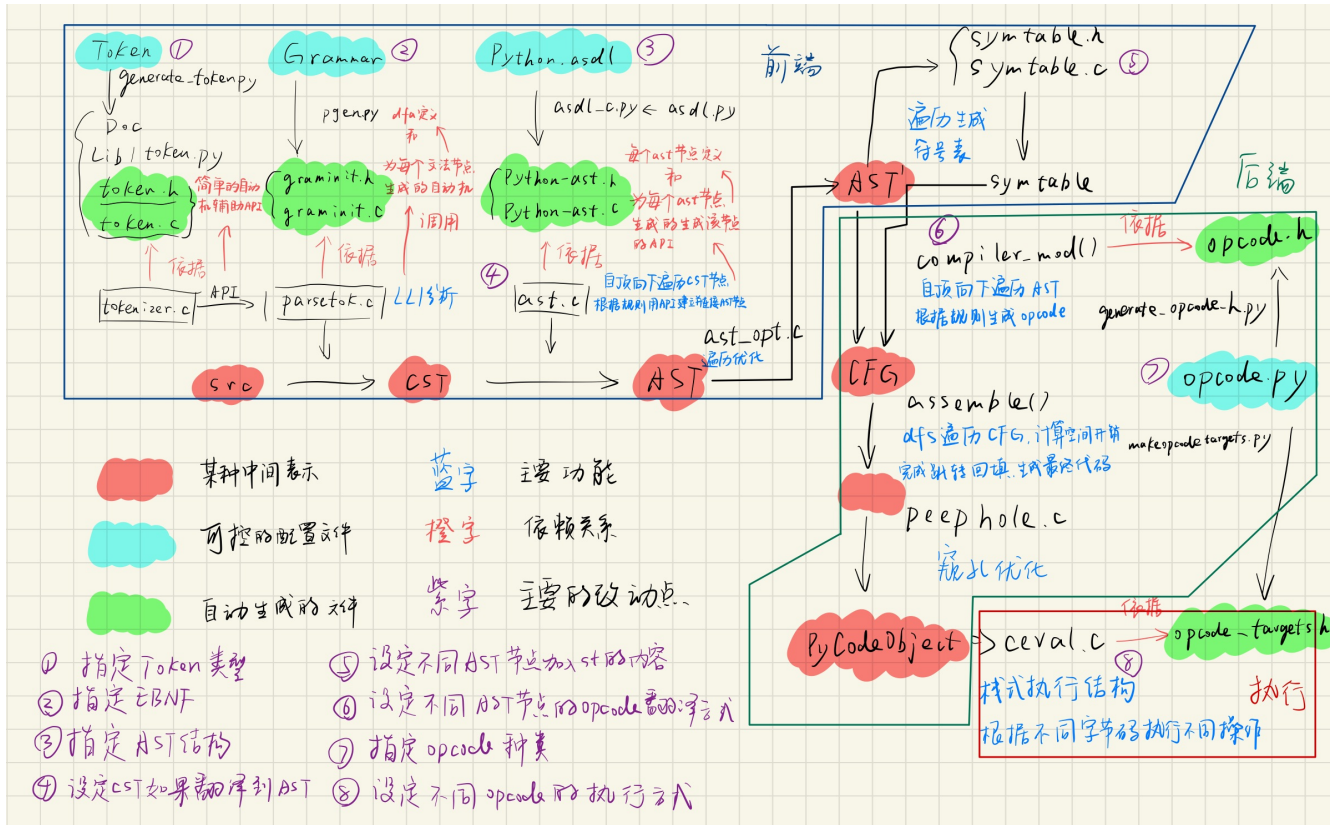 Token ①
generate_token.py
Doc
Lib/token.py
token.h
token.c
简单的自动
机辅助API
依据
tokenizer.c
API
Grammar ②
pgen.py
dfa定义
和
为每个文法节点
生成的自动机
graminit.h
graminit.c
调用
依据
parsetok.c
LL1分析
Python.asdl ③
asdl_c.py ← asdl.py
每个ast节点定义
和
为每个ast节点
生成的生成该节点
的API
Python-ast.h
Python-ast.c
依据
④
ast.c
自顶向下遍历CST节点
根据规则用API建立并链接AST节点
src
CST
AST
ast_opt.c
遍历优化
前端
symtable.h
symtable.c ⑤
遍历生成
符号表
AST'
symtable
后端
⑥
compiler_mod()
依据
opcode.h
自顶向下遍历AST
根据规则生成opcode
generate_opcode_h.py
CFG
⑦ opcode.py
assemble()
dfs遍历CFG,计算空间开销
完成跳转回填,生成最终代码
makeopcodetargets.py
peephole.c
窥孔优化
PyCodeObject
ceval.c
依据
opcode_targets.h
⑧
栈式执行结构
执行
根据不同字节码执行不同操作
某种中间表示
蓝字 主要功能
可控的配置文件
橙字 依赖关系
自动生成的文件
紫字 主要的改动点
① 指定Token类型
② 指定EBNF
③ 指定AST结构
④ 设定CST如果翻译到AST
⑤ 设定不同AST节点加入st的内容
⑥ 设定不同AST节点的opcode翻译方式
⑦ 指定opcode种类
⑧ 设定不同opcode的执行方式